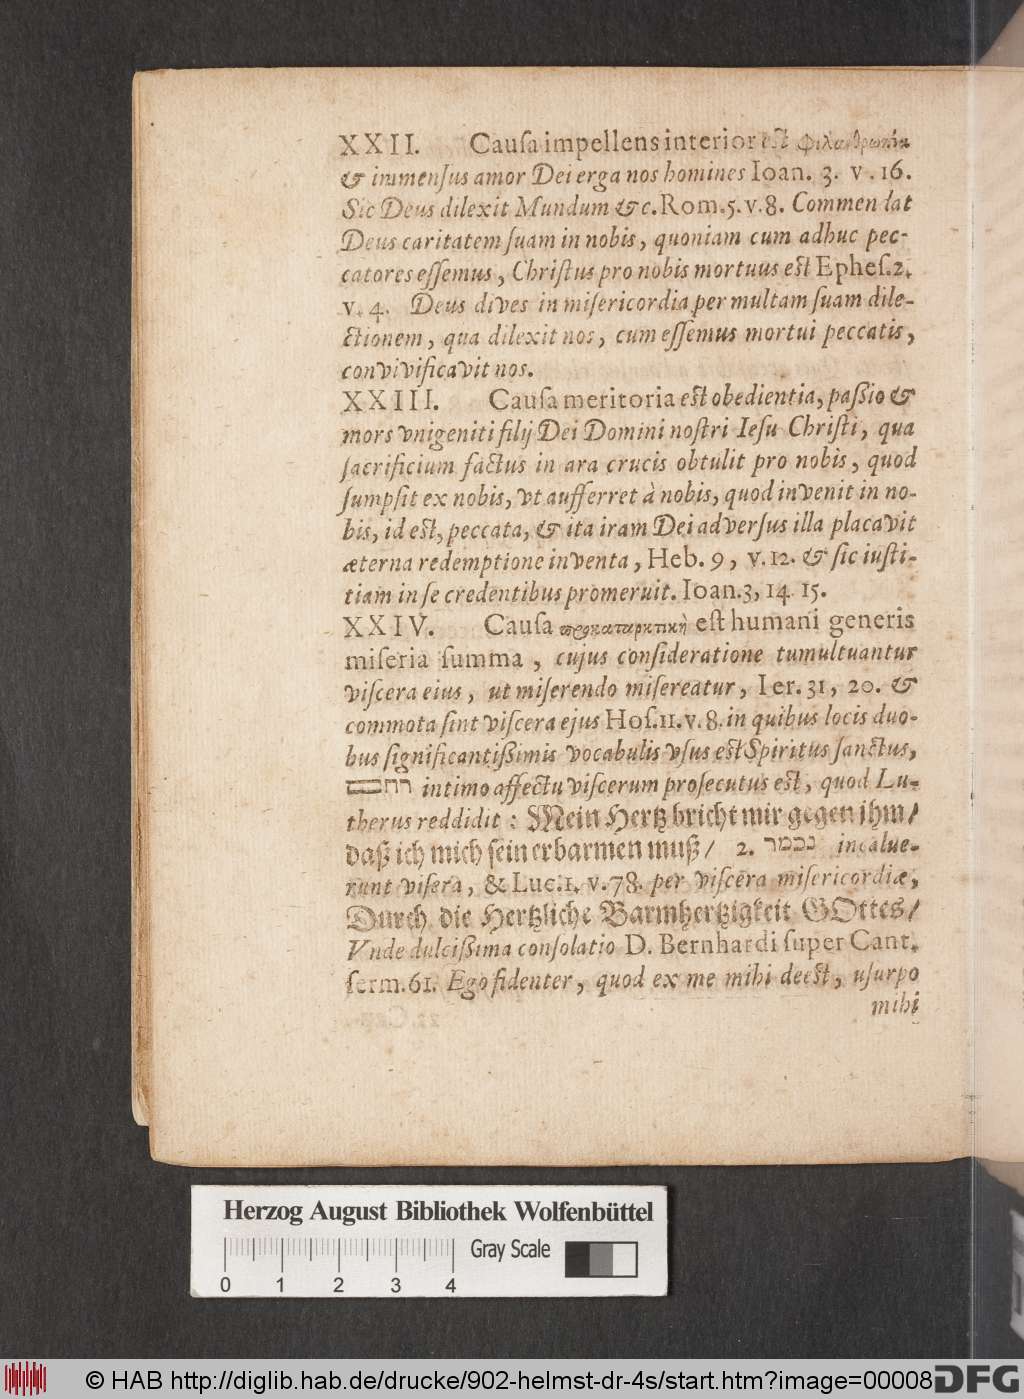 XXII. Cauſa impellens interior eſt φιλανθρωπία
& immenſus amor Dei erga nos homines Ioan. 3. v. 16.
Sic Deus dilexit Mundum &c. Rom. 5. v. 8. Commendat
Deus caritatem ſuam in nobis, quoniam cum adhuc pec-
catores eſſemus, Chriſtus pro nobis mortuus eſt Epheſ. 2.
v. 4. Deus dives in miſericordia per multam ſuam dile-
ctionem, qua dilexit nos, cum eſſemus mortui peccatis,
convivificavit nos.
XXIII. Cauſa meritoria eſt obedientia, paßio &
mors vnigeniti filij Dei Domini noſtri Ieſu Chriſti, qua
ſacrificium factus in ara crucis obtulit pro nobis, quod
ſumpſit ex nobis, vt aufferret à nobis, quod invenit in no-
bis, id eſt, peccata, & ita iram Dei adverſus illa placavit
æterna redemptione inventa, Heb. 9, v. 12. & ſic iuſti-
tiam in ſe credentibus promeruit. Ioan. 3, 14 15.
XXIV. Cauſa προκαταρκτικὴ eſt humani generis
miſeria ſumma, cujus conſideratione tumultuantur
viſcera eius, ut miſerendo miſereatur, Ier. 31, 20. &
commota ſint viſcera ejus Hoſ. 11. v. 8. in quibus locis duo-
bus ſignificantißimis vocabulis vſus eſt Spiritus ſanctus,
רחם intimo affectu viſcerum proſecutus eſt, quod Lu-
therus reddidit: Mein Hertz bricht mir gegen ihm/
daß ich mich ſein erbarmen muß/ 2. נכמר incalue-
runt viſera, & Luc. 1. v. 78. per viſcera miſericordiæ,
Durch die Hertzliche Barmhertzigkeit GOttes/
Vnde dulcißima conſolatio D. Bernhardi ſuper Cant.
ſerm. 61. Ego fidenter, quod ex me mihi deeſt, uſurpo
mihi
Herzog August Bibliothek Wolfenbüttel
Gray Scale
0 1 2 3 4
© HAB http://diglib.hab.de/drucke/902-helmst-dr-4s/start.htm?image=00008
DFG